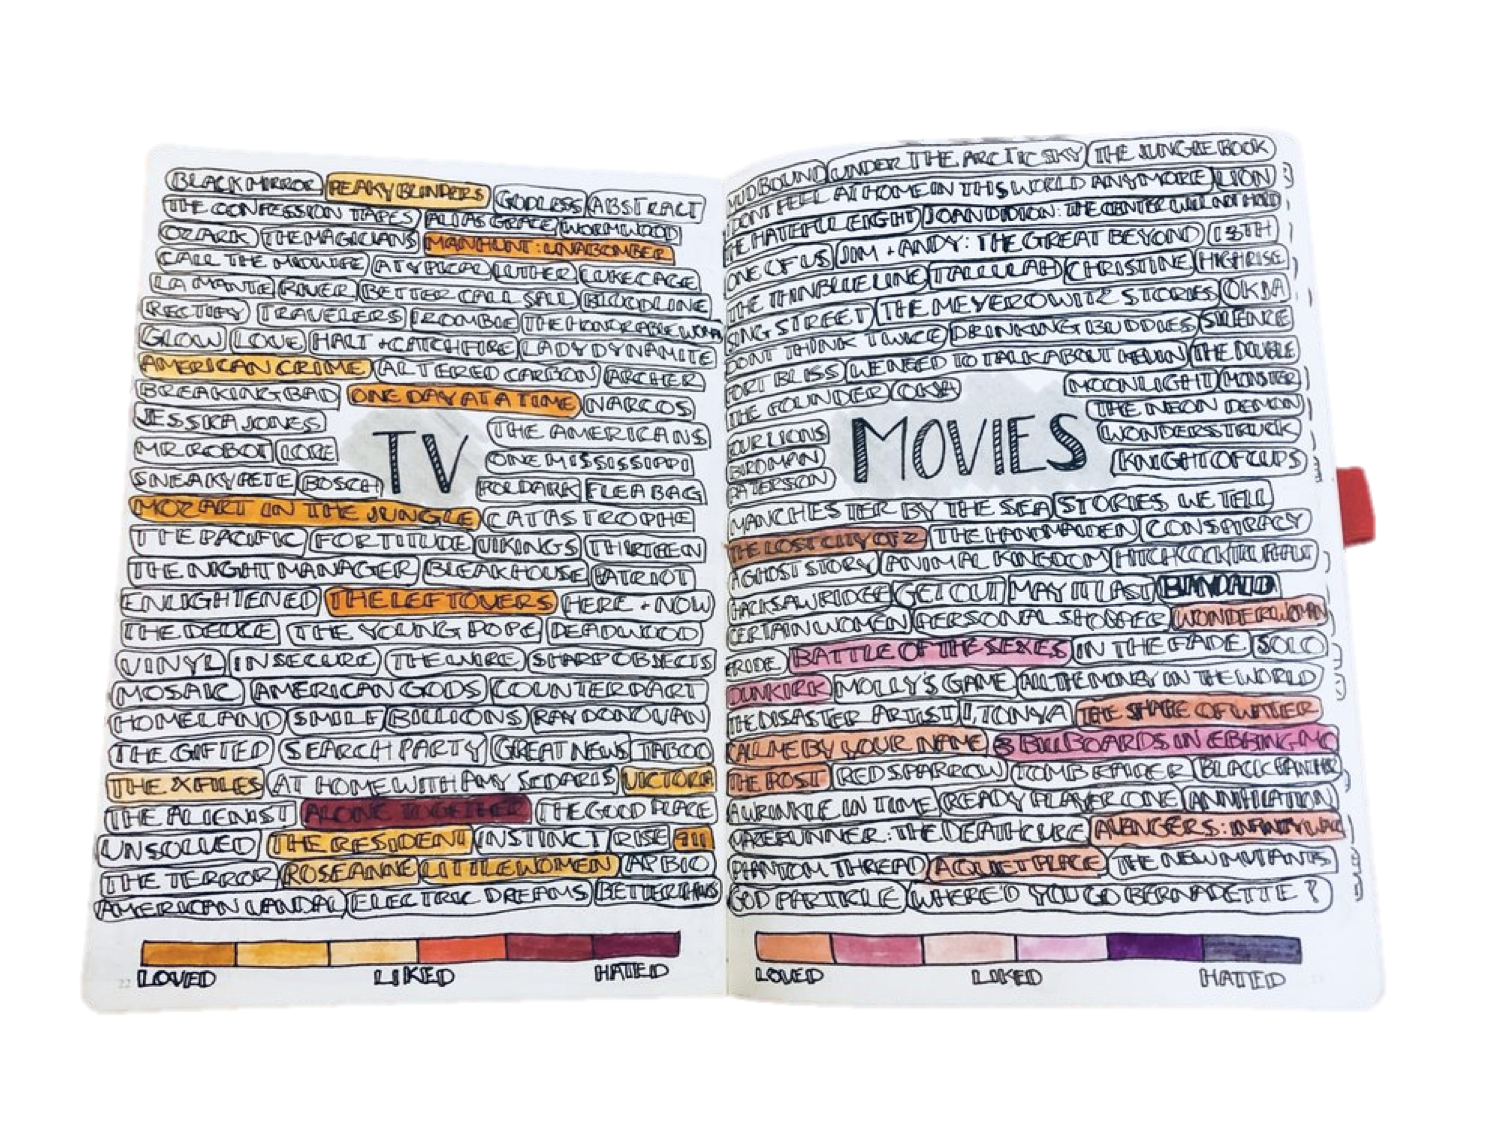 BLACK MIRROR PEAKY BLINDERS GODLESS ABSTRACT
THE CONFESSION TAPES ALIAS GRACE WORMWOOD
OZARK THE MAGICIANS MANHUNT: UNABOMBER
CALL THE MIDWIFE ATYPICAL LUTHER LUKE CAGE
LA MANTE RIVER BETTER CALL SAUL BLOODLINE
RECTIFY TRAVELERS IZOMBIE THE HONORABLE WOMAN
GLOW LOVE HALT + CATCH FIRE LADY DYNAMITE
AMERICAN CRIME ALTERED CARBON ARCHER
BREAKING BAD ONE DAY AT A TIME NARCOS
JESSICA JONES THE AMERICANS
MR ROBOT LORE ONE MISSISSIPPI
SNEAKY PETE BOSCH POLDARK FLEABAG
TV
MOZART IN THE JUNGLE CATASTROPHE
THE PACIFIC FORTITUDE VIKINGS THIRTEEN
THE NIGHT MANAGER BLEAK HOUSE PATRIOT
ENLIGHTENED THE LEFTOVERS HERE + NOW
THE DEUCE THE YOUNG POPE DEADWOOD
VINYL INSECURE THE WIRE SHARP OBJECTS
MOSAIC AMERICAN GODS COUNTERPART
HOMELAND SMILF BILLIONS RAY DONOVAN
THE GIFTED SEARCH PARTY GREAT NEWS TABOO
THE X FILES AT HOME WITH AMY SEDARIS VICTORIA
THE ALIENIST ALONE TOGETHER THE GOOD PLACE
UNSOLVED THE RESIDENT INSTINCT RISE 911
THE TERROR ROSEANNE LITTLE WOMEN AP BIO
AMERICAN VANDAL ELECTRIC DREAMS BETTER THINGS
LOVED LIKED HATED
22
MUDBOUND UNDER THE ARCTIC SKY THE JUNGLE BOOK
I DONT FEEL AT HOME IN THIS WORLD ANYMORE LION
THE HATEFUL EIGHT JOAN DIDION: THE CENTER WILL NOT HOLD
ONE OF US JIM + ANDY: THE GREAT BEYOND 13TH
THE THIN BLUE LINE TALLULAH CHRISTINE HIGH RISE
SING STREET THE MEYEROWITZ STORIES OKJA
DONT THINK TWICE DRINKING BUDDIES SILENCE
FORT BLISS WE NEED TO TALK ABOUT KEVIN THE DOUBLE
THE FOUNDER OKJA MOONLIGHT MONSTER
THE NEON DEMON
FOUR LIONS WONDERSTRUCK
BIRDMAN KNIGHT OF CUPS
PATERSON
MOVIES
MANCHESTER BY THE SEA STORIES WE TELL
THE LOST CITY OF Z THE HANDMAIDEN CONSPIRACY
A GHOST STORY ANIMAL KINGDOM HITCHCOCK TRUFFAUT
HACKSAW RIDGE GET OUT MAY IT LAST
CERTAIN WOMEN PERSONAL SHOPPER WONDER WOMAN
BATTLE OF THE SEXES IN THE FADE SOLO
DUNKIRK MOLLY'S GAME ALL THE MONEY IN THE WORLD
THE DISASTER ARTIST I, TONYA THE SHAPE OF WATER
CALL ME BY YOUR NAME 3 BILLBOARDS IN EBBING MO
THE POST RED SPARROW TOMB RAIDER BLACK PANTHER
A WRINKLE IN TIME READY PLAYER ONE ANNIHILATION
MAZE RUNNER: THE DEATH CURE AVENGERS: INFINITY WAR
PHANTOM THREAD A QUIET PLACE THE NEW MUTANTS
GOD PARTICLE WHERE'D YOU GO BERNADETTE?
LOVED LIKED HATED